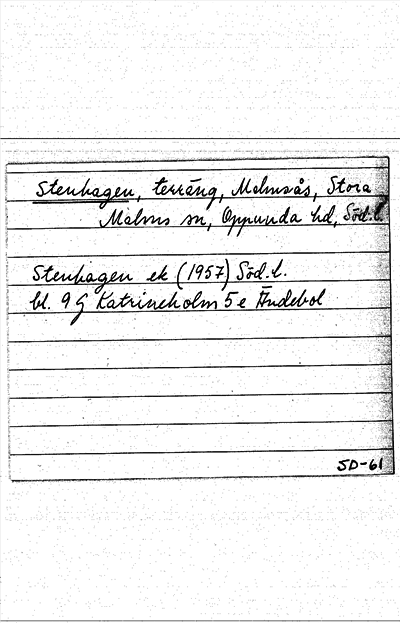 Stenhagen, terräng, Malmsås, Stora
Malms sn, Oppunda hd, Söd.l.
Stenhagen ek (1957) Söd.l.
bl. 9 G Katrineholm 5 e Ändebol
SD-61